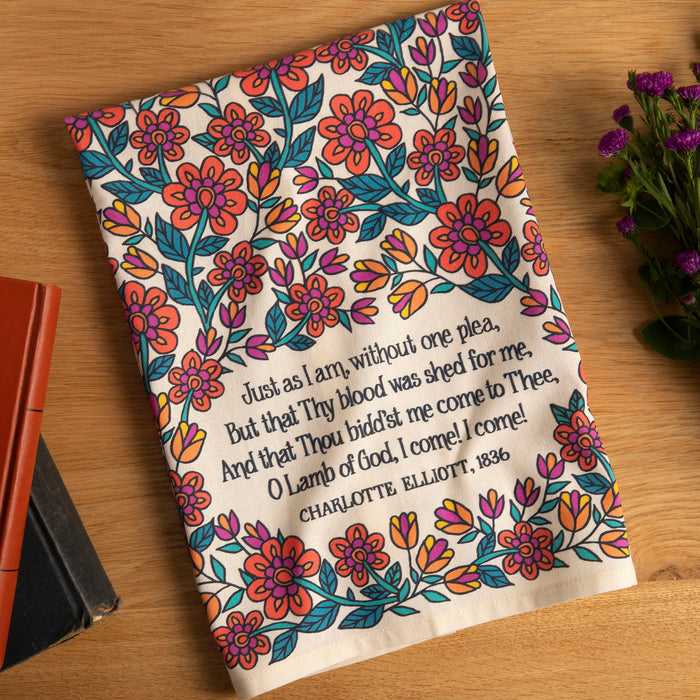 Just as I am, without one plea,
But that Thy blood was shed for me,
And that Thou bidd'st me come to Thee,
O Lamb of God, I come! I come!
CHARLOTTE ELLIOTT, 1836